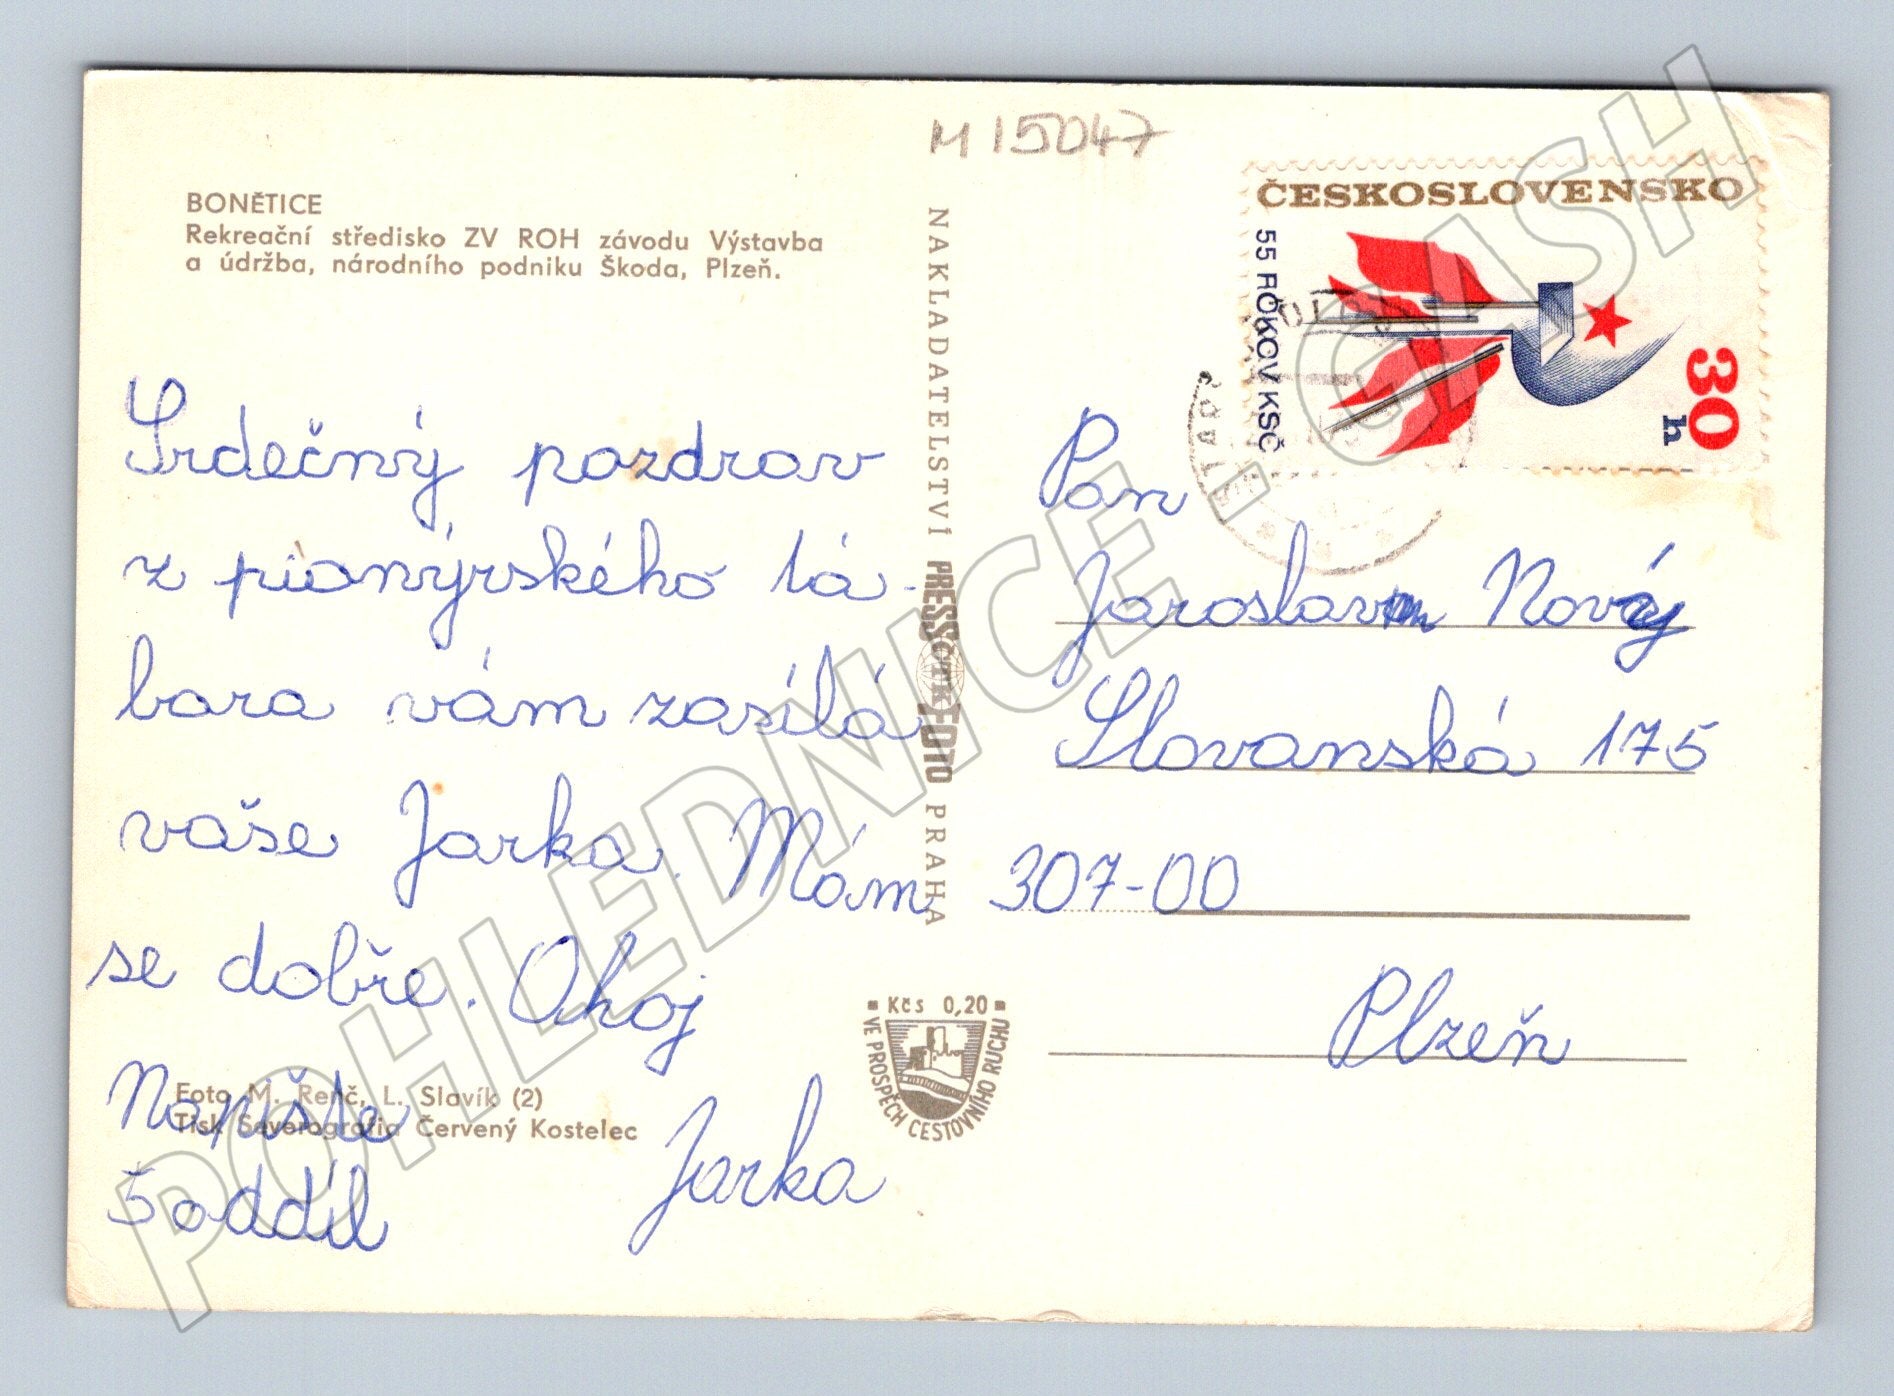 M 15047
BONĚTICE
Rekreační středisko ZV ROH závodu Výstavba
a údržba, národního podniku Škoda, Plzeň.
Srdečný pozdrav
z pionýrského tá-
bora vám zasílá
vaše Jarka. Mám
se dobře. Ahoj
Napište
5 oddíl
Jarka
Foto M. Renč, L. Slavík (2)
Tisk Severografia Červený Kostelec
NAKLADATELSTVÍ PRESSFOTO PRAHA
ČTK
Kčs 0,20
VE PROSPĚCH CESTOVNÍHO RUCHU
ČESKOSLOVENSKO
55 ROKOV KSČ
30
h
Pan
Jaroslav Nový
Slovanská 175
307-00
Plzeň
POHLEDNICE.CASH